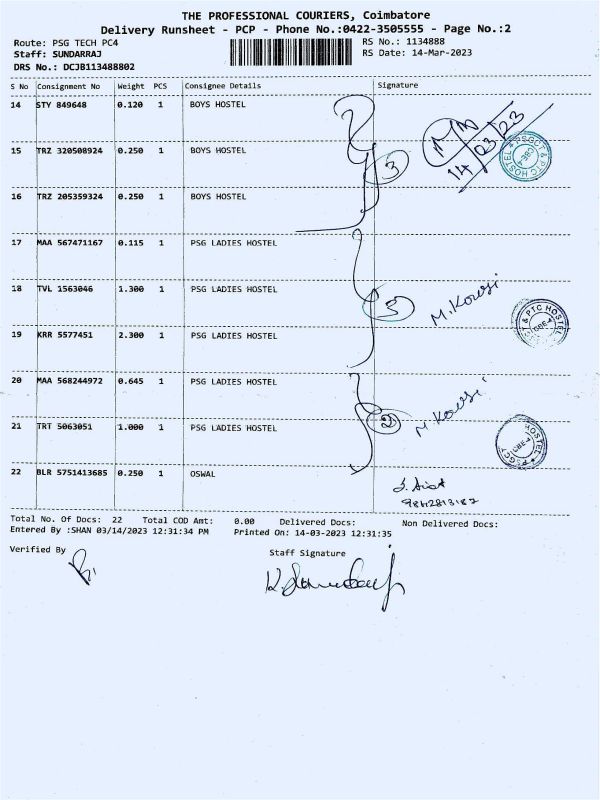 THE PROFESSIONAL COURIERS, Coimbatore
Delivery Runsheet - PCP - Phone No.:0422-3505555 - Page No.:2
Route: PSG TECH PC4 RS No.: 1134888
Staff: SUNDARRAJ RS Date: 14-Mar-2023
DRS No.: DCJB113488802
S No Consignment No Weight PCS Consignee Details Signature
14 STY 849648 0.120 1 BOYS HOSTEL
14 03 23
PSGCT & PTC HOSTEL CBE-4
15 TRZ 320508924 0.250 1 BOYS HOSTEL 3
16 TRZ 205359324 0.250 1 BOYS HOSTEL
17 MAA 567471167 0.115 1 PSG LADIES HOSTEL
18 TVL 1563046 1.300 1 PSG LADIES HOSTEL 5 M. Kowsi
& PTC HOSTEL CBE-4
19 KRR 5577451 2.300 1 PSG LADIES HOSTEL
20 MAA 568244972 0.645 1 PSG LADIES HOSTEL
21 TRT 5063051 1.000 1 PSG LADIES HOSTEL 2 M Kowsi
HOSTEL PSGCT CBE-4
22 BLR 5751413685 0.250 1 OSWAL
Total No. Of Docs: 22 Total COD Amt: 0.00 Delivered Docs: Non Delivered Docs:
Entered By :SHAN 03/14/2023 12:31:34 PM Printed On: 14-03-2023 12:31:35
Verified By Staff Signature